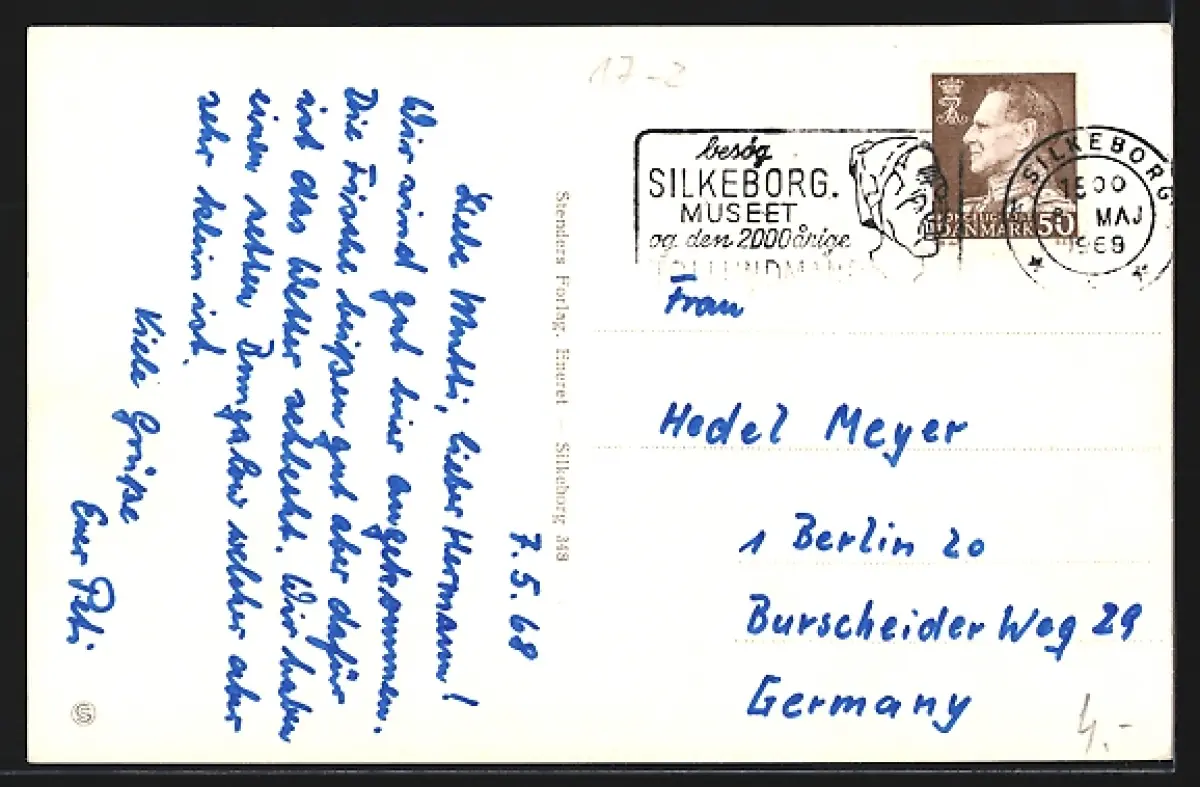 17-2
7.5.68
Liebe Mutti, lieber Hermann!
Wir sind gut hier angekommen.
Die Fische beißen gut aber dafür
ist das Wetter schlecht. Wir haben
einen netten Bungalow welcher aber
sehr klein ist.
Viele Grüße
Euer Peti.
Stenders Forlag, Eneret - Silkeborg 348
besøg
SILKEBORG.
MUSEET
og den 2000årige
TOLLUNDMAND
DANMARK 50
SILKEBORG
1500
8 MAJ
1968
Frau
Hedel Meyer
1 Berlin 20
Burscheider Weg 29
Germany
4.-